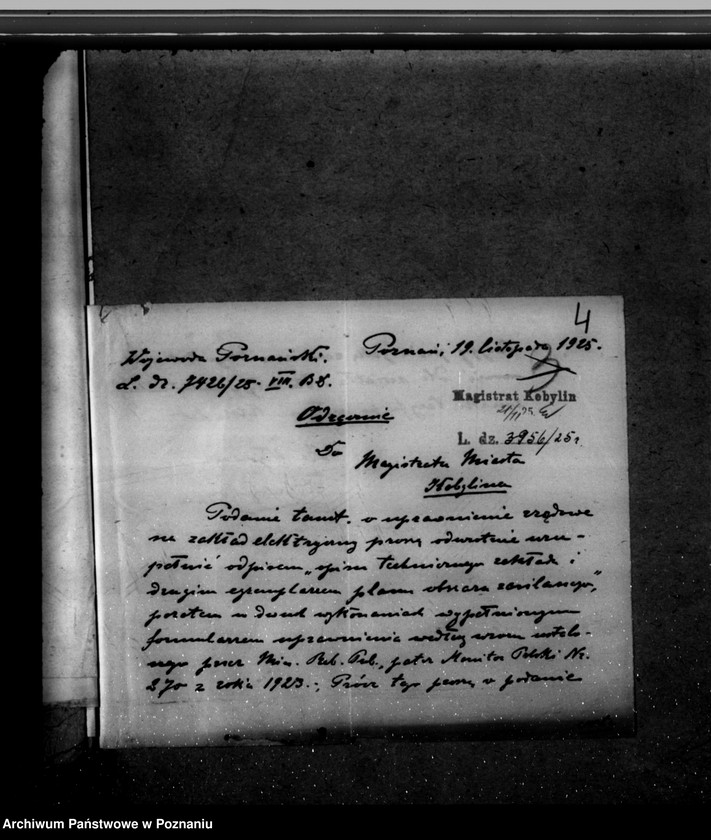 4
Wojewoda Poznański.
Poznań, 19. listopada 1925.
L. dz. 7426/25. VIII. B.E.
Magistrat Kobylin
21/11 25.
Odręcznie
L. dz. 3956/25.
Do
Magistratu Miasta
Kobylina
Podanie tamt. o uprawnienie rządowe
na zakład elektryczny proszę odwrotnie uzu-
pełnić odpisem „opisu technicznego zakładu i
drugim egzemplarzem planu obszaru zasilanego,"
pozatem w dwuch wykonaniach wypełnionym
formularzem uprawnienia według wzoru ustalo-
nego przez Min. Rob. Pub., patrz Monitor Polski Nr.
270 z roku 1923.; Prócz tego proszę w podanie
Archiwum Państwowe w Poznaniu